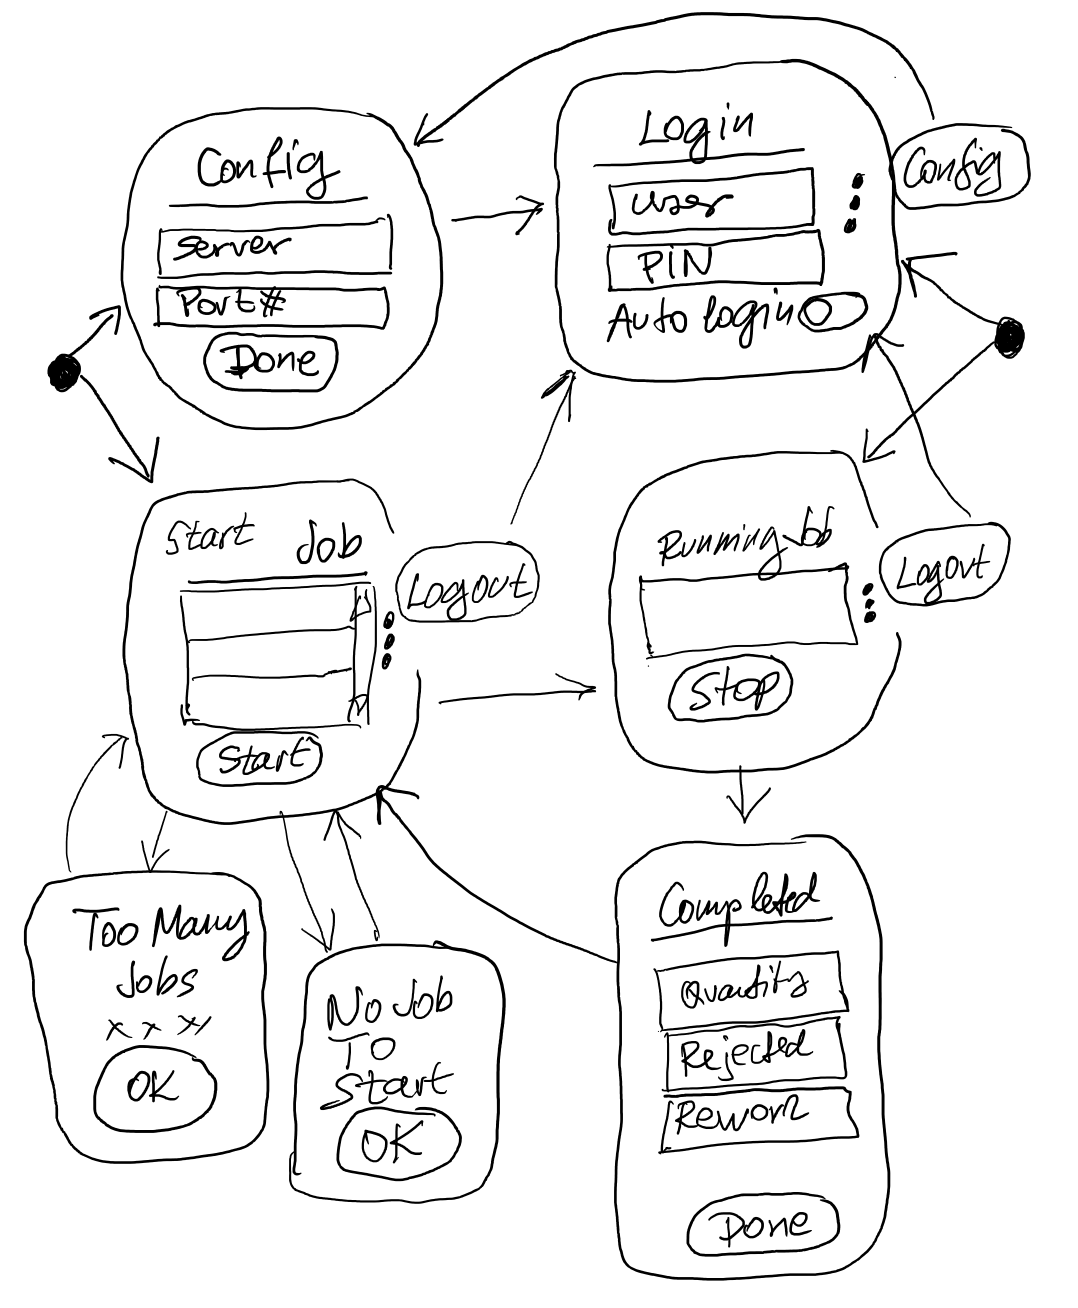 Config
Server
Port#
Done
Login
User
PIN
Auto login
Config
Start Job
Start
Logout
Running Job
Stop
Logout
Too Many
Jobs
x x x
OK
No Job
To
Start
OK
Completed
Quantity
Rejected
Rework
Done